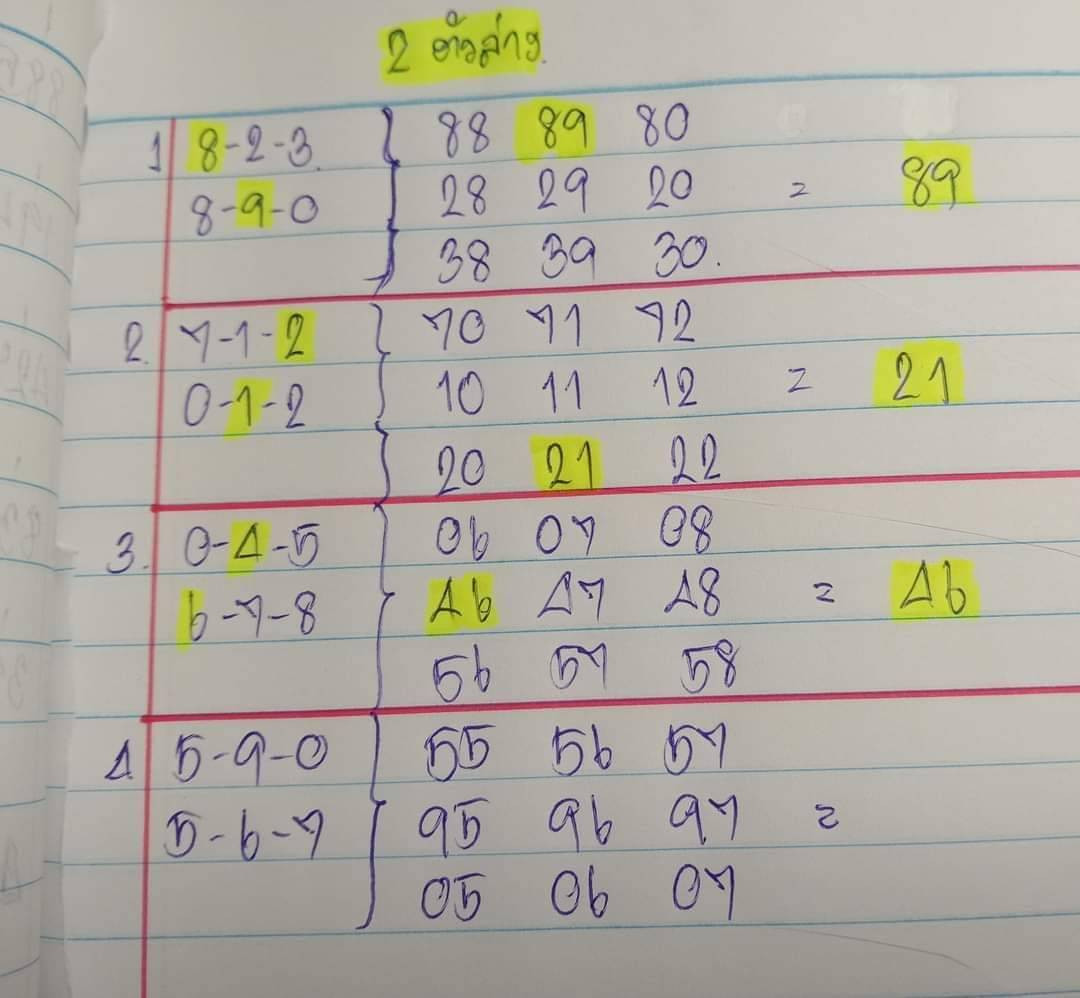 2 ตัวล่าง.
1 8-2-3. 88 89 80
8-9-0 28 29 20 = 89
38 39 30.
2. 7-1-2 70 71 72
0-1-2 10 11 12 = 21
20 21 22
3. 0-4-5 06 07 08
6-7-8 46 47 48 = 46
56 57 58
4. 5-9-0 55 56 57
5-6-7 95 96 97 =
05 06 07